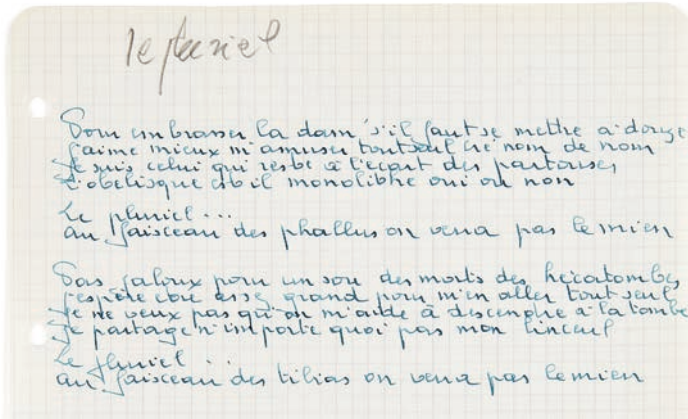 le pluriel
Pour embrasser la dam' s'il faut se mettre à douze
J'aime mieux m'amuser tout seul cré nom de nom
Je suis celui qui reste à l'écart des partouses
L'obélisque est il monolithe oui ou non
Le pluriel ...
au faisceau des phallus on verra pas le mien
Pas jaloux pour un sou des morts des hécatombes
J'espère être assez grand pour m'en aller tout seul
Je ne veux pas qu'on m'aide à descendre à la tombe
Je partage n'importe quoi pas mon linceul
Le pluriel ...
au faisceau des tibias on verra pas le mien